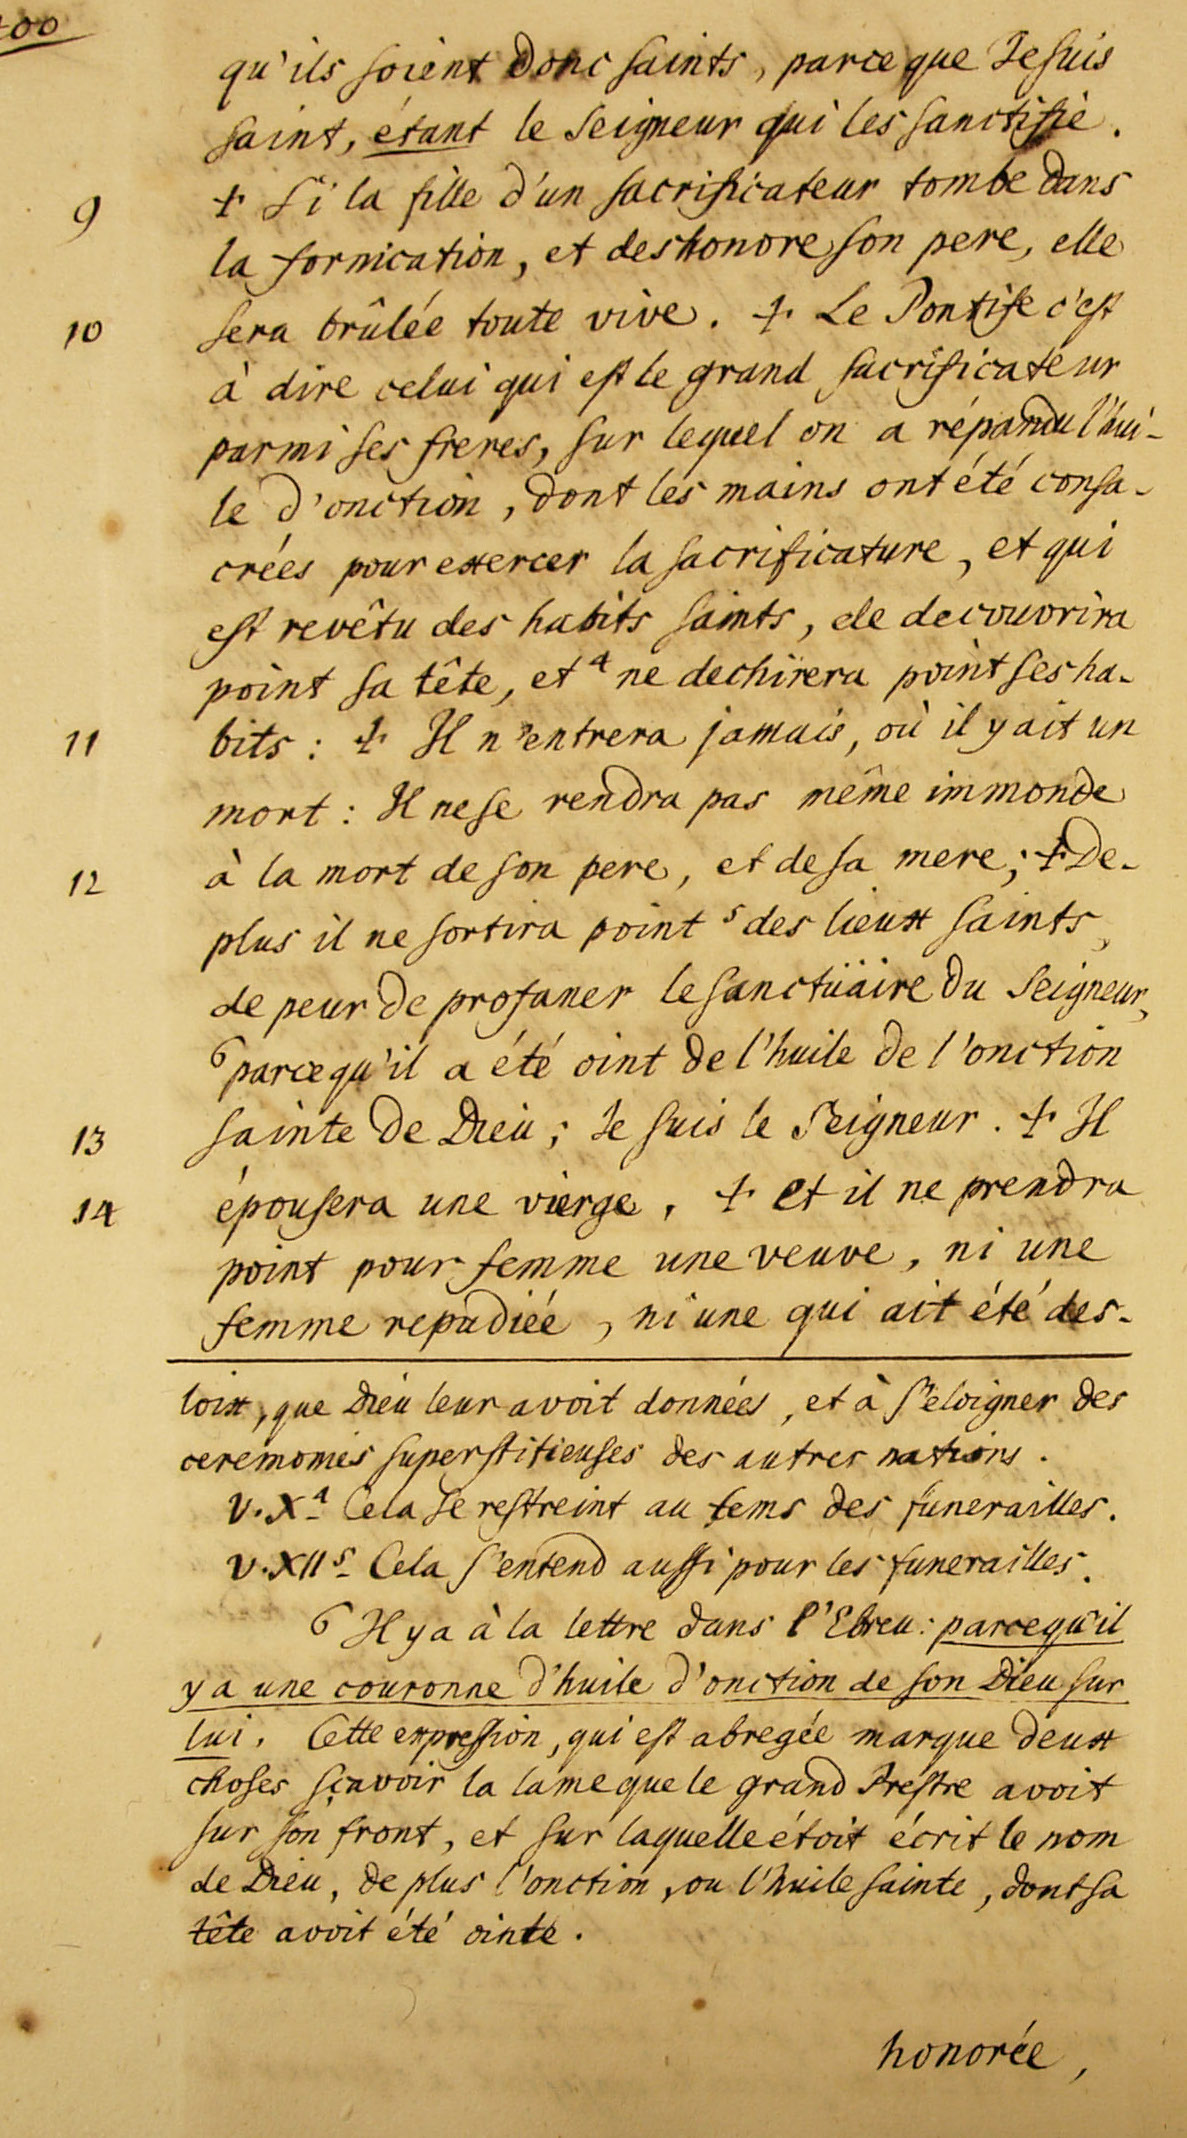 400
qu'ils soient donc saints, parce que Je suis
saint, étant le Seigneur qui les sanctifie.
9 + Si la fille d'un sacrificateur tombe dans
la fornication, et deshonore son pere, elle
10 sera brûlée toute vive. + Le Pontife c'est
à dire celui qui est le grand sacrificateur
parmi ses freres, sur lequel on a répandu l'hui-
le d'onction, dont les mains ont été consa-
crées pour exercer la sacrificature, et qui
est revêtu des habits saints, de decouvrira
point sa tête, et 4 ne dechirera point ses ha-
11 bits : + Il n'entrera jamais, où il y ait un
mort : Il ne se rendra pas même immonde
12 à la mort de son pere, et de sa mere; + De-
plus il ne sortira point 5 des lieux saints,
de peur de profaner le sanctüaire du Seigneur,
6 parcequ'il a été oint de l'huile de l'onction
13 sainte de Dieu; Je suis le Seigneur. + Il
14 épousera une vierge, + et il ne prendra
point pour femme une veuve, ni une
femme repudiée, ni une qui ait été des-
loix, que Dieu leur avoit données, et à s'eloigner des
ceremonies superstitieuses des autres nations.
V. X 4 Cela se restreint au tems des funerailles.
V. XII 5 Cela s'entend aussi pour les funerailles.
6 Il y a à la lettre dans l'Ebreu : parcequ'il
y a une couronne d'huile d'onction de son Dieu sur
lui. Cette expression, qui est abregée marque deux
choses sçavoir la lame que le grand Prestre avoit
sur son front, et sur laquelle étoit écrit le nom
de Dieu, de plus l'onction, ou l'huile sainte, dont sa
tête avoit été ointe.
honorée,